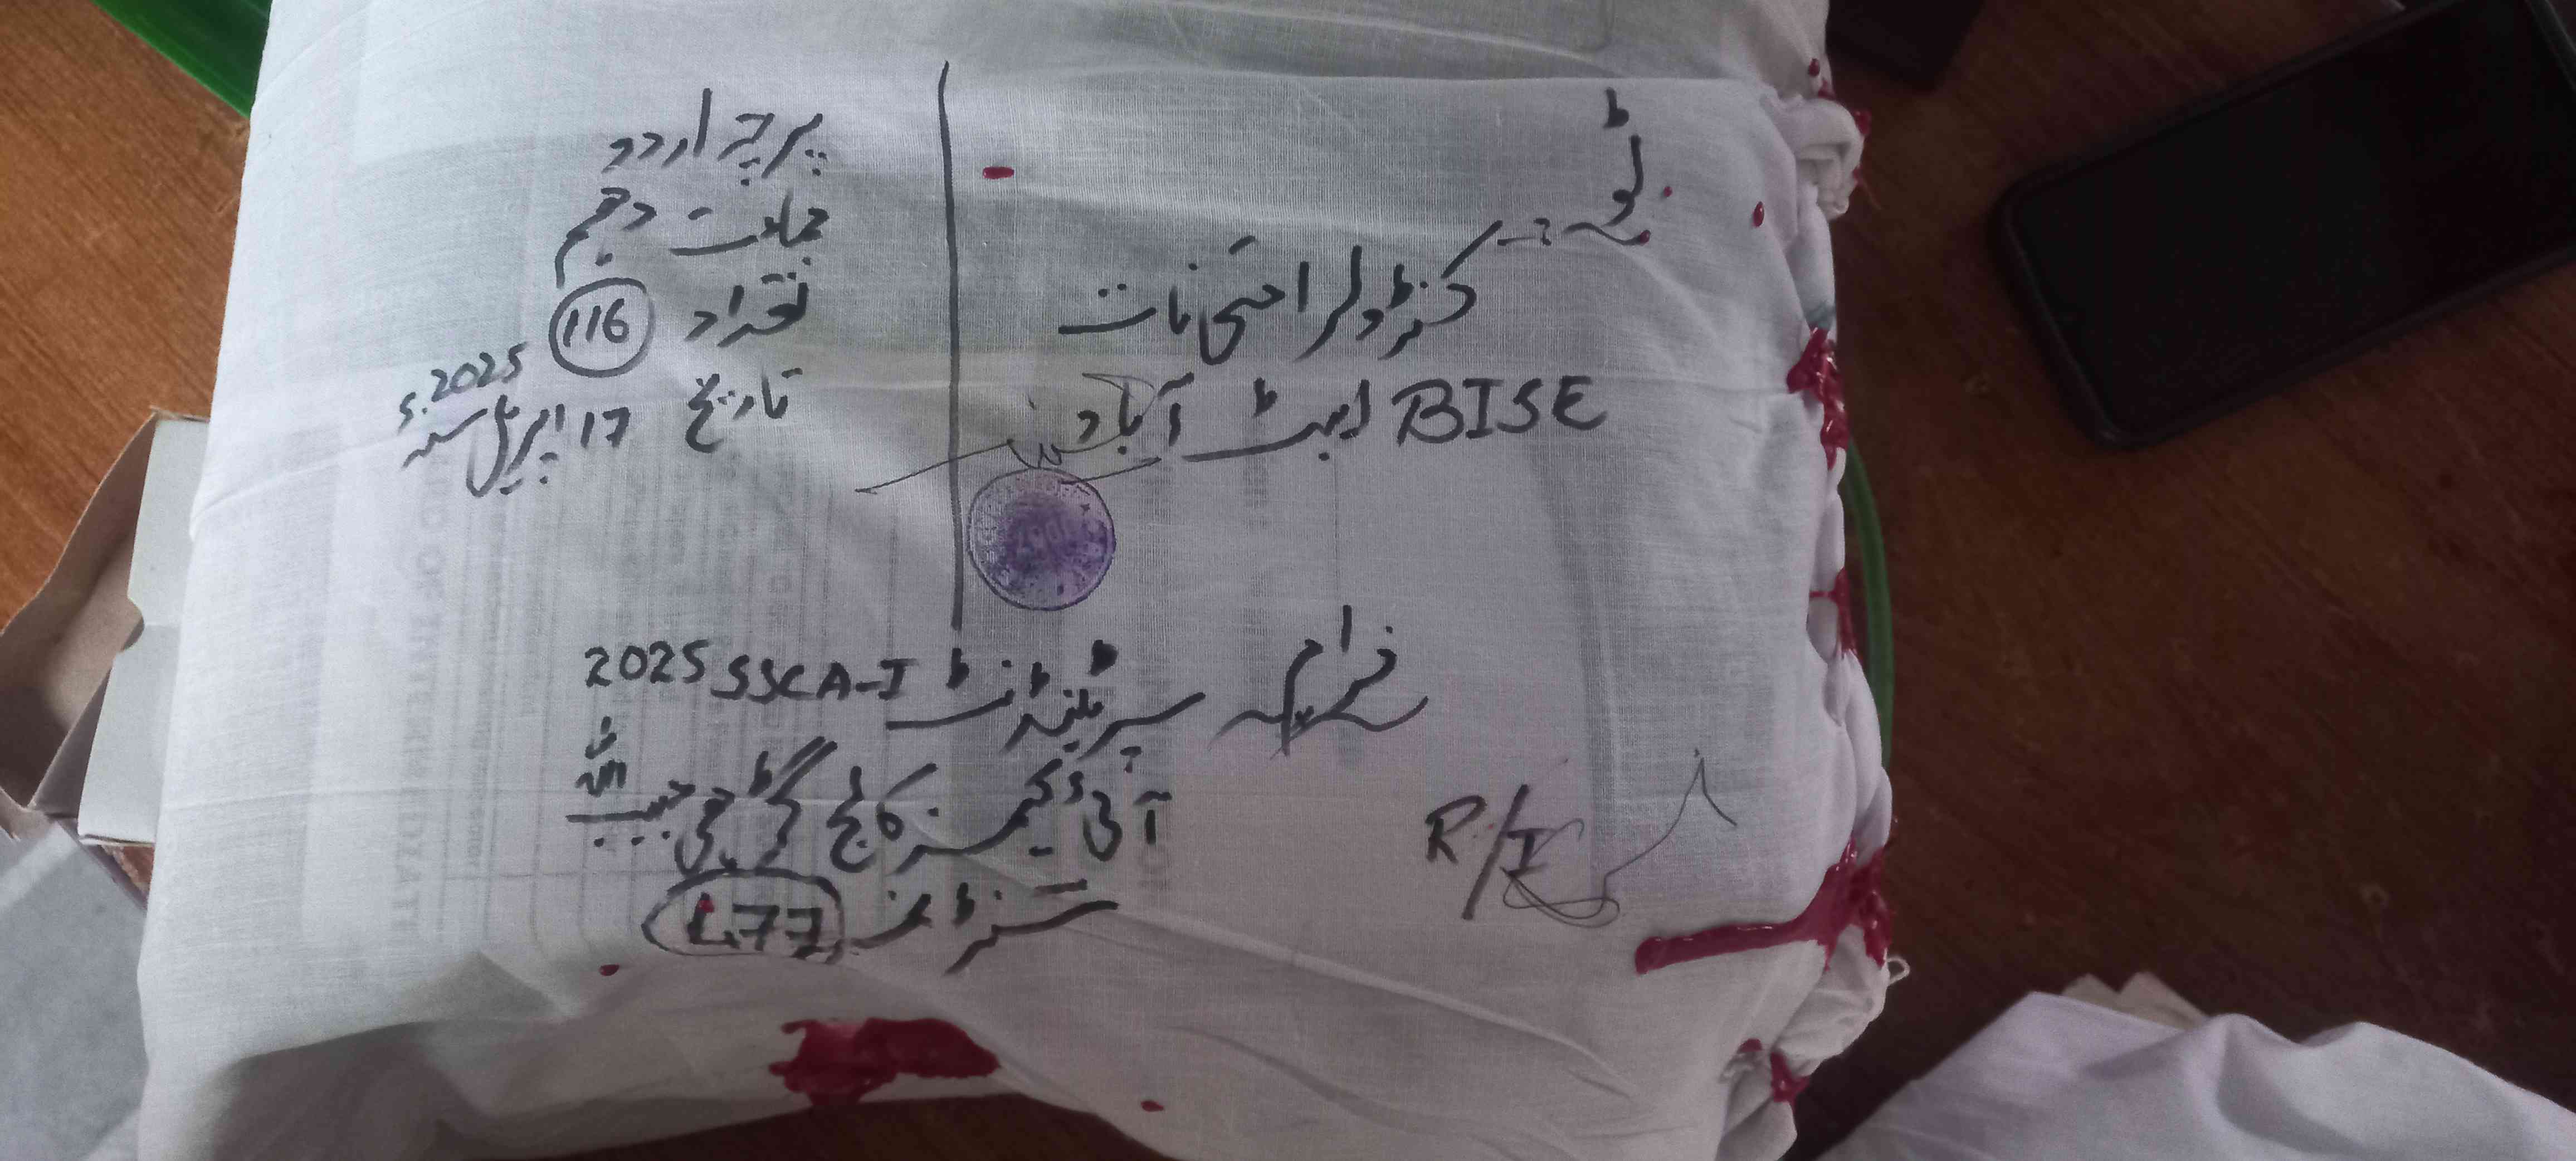 ٹو :-
کنٹرولر امتحانات
BISE ایبٹ آباد
پرچہ اردو
جماعت دہم
تعداد 116
تاریخ 17 اپریل سنہ 2025ء
فرام
سپرٹنڈنٹ SSCA-I 2025
آئیڈیمز کالج گڑھی حبیب اللہ
سنٹر نمبر 177
R/I